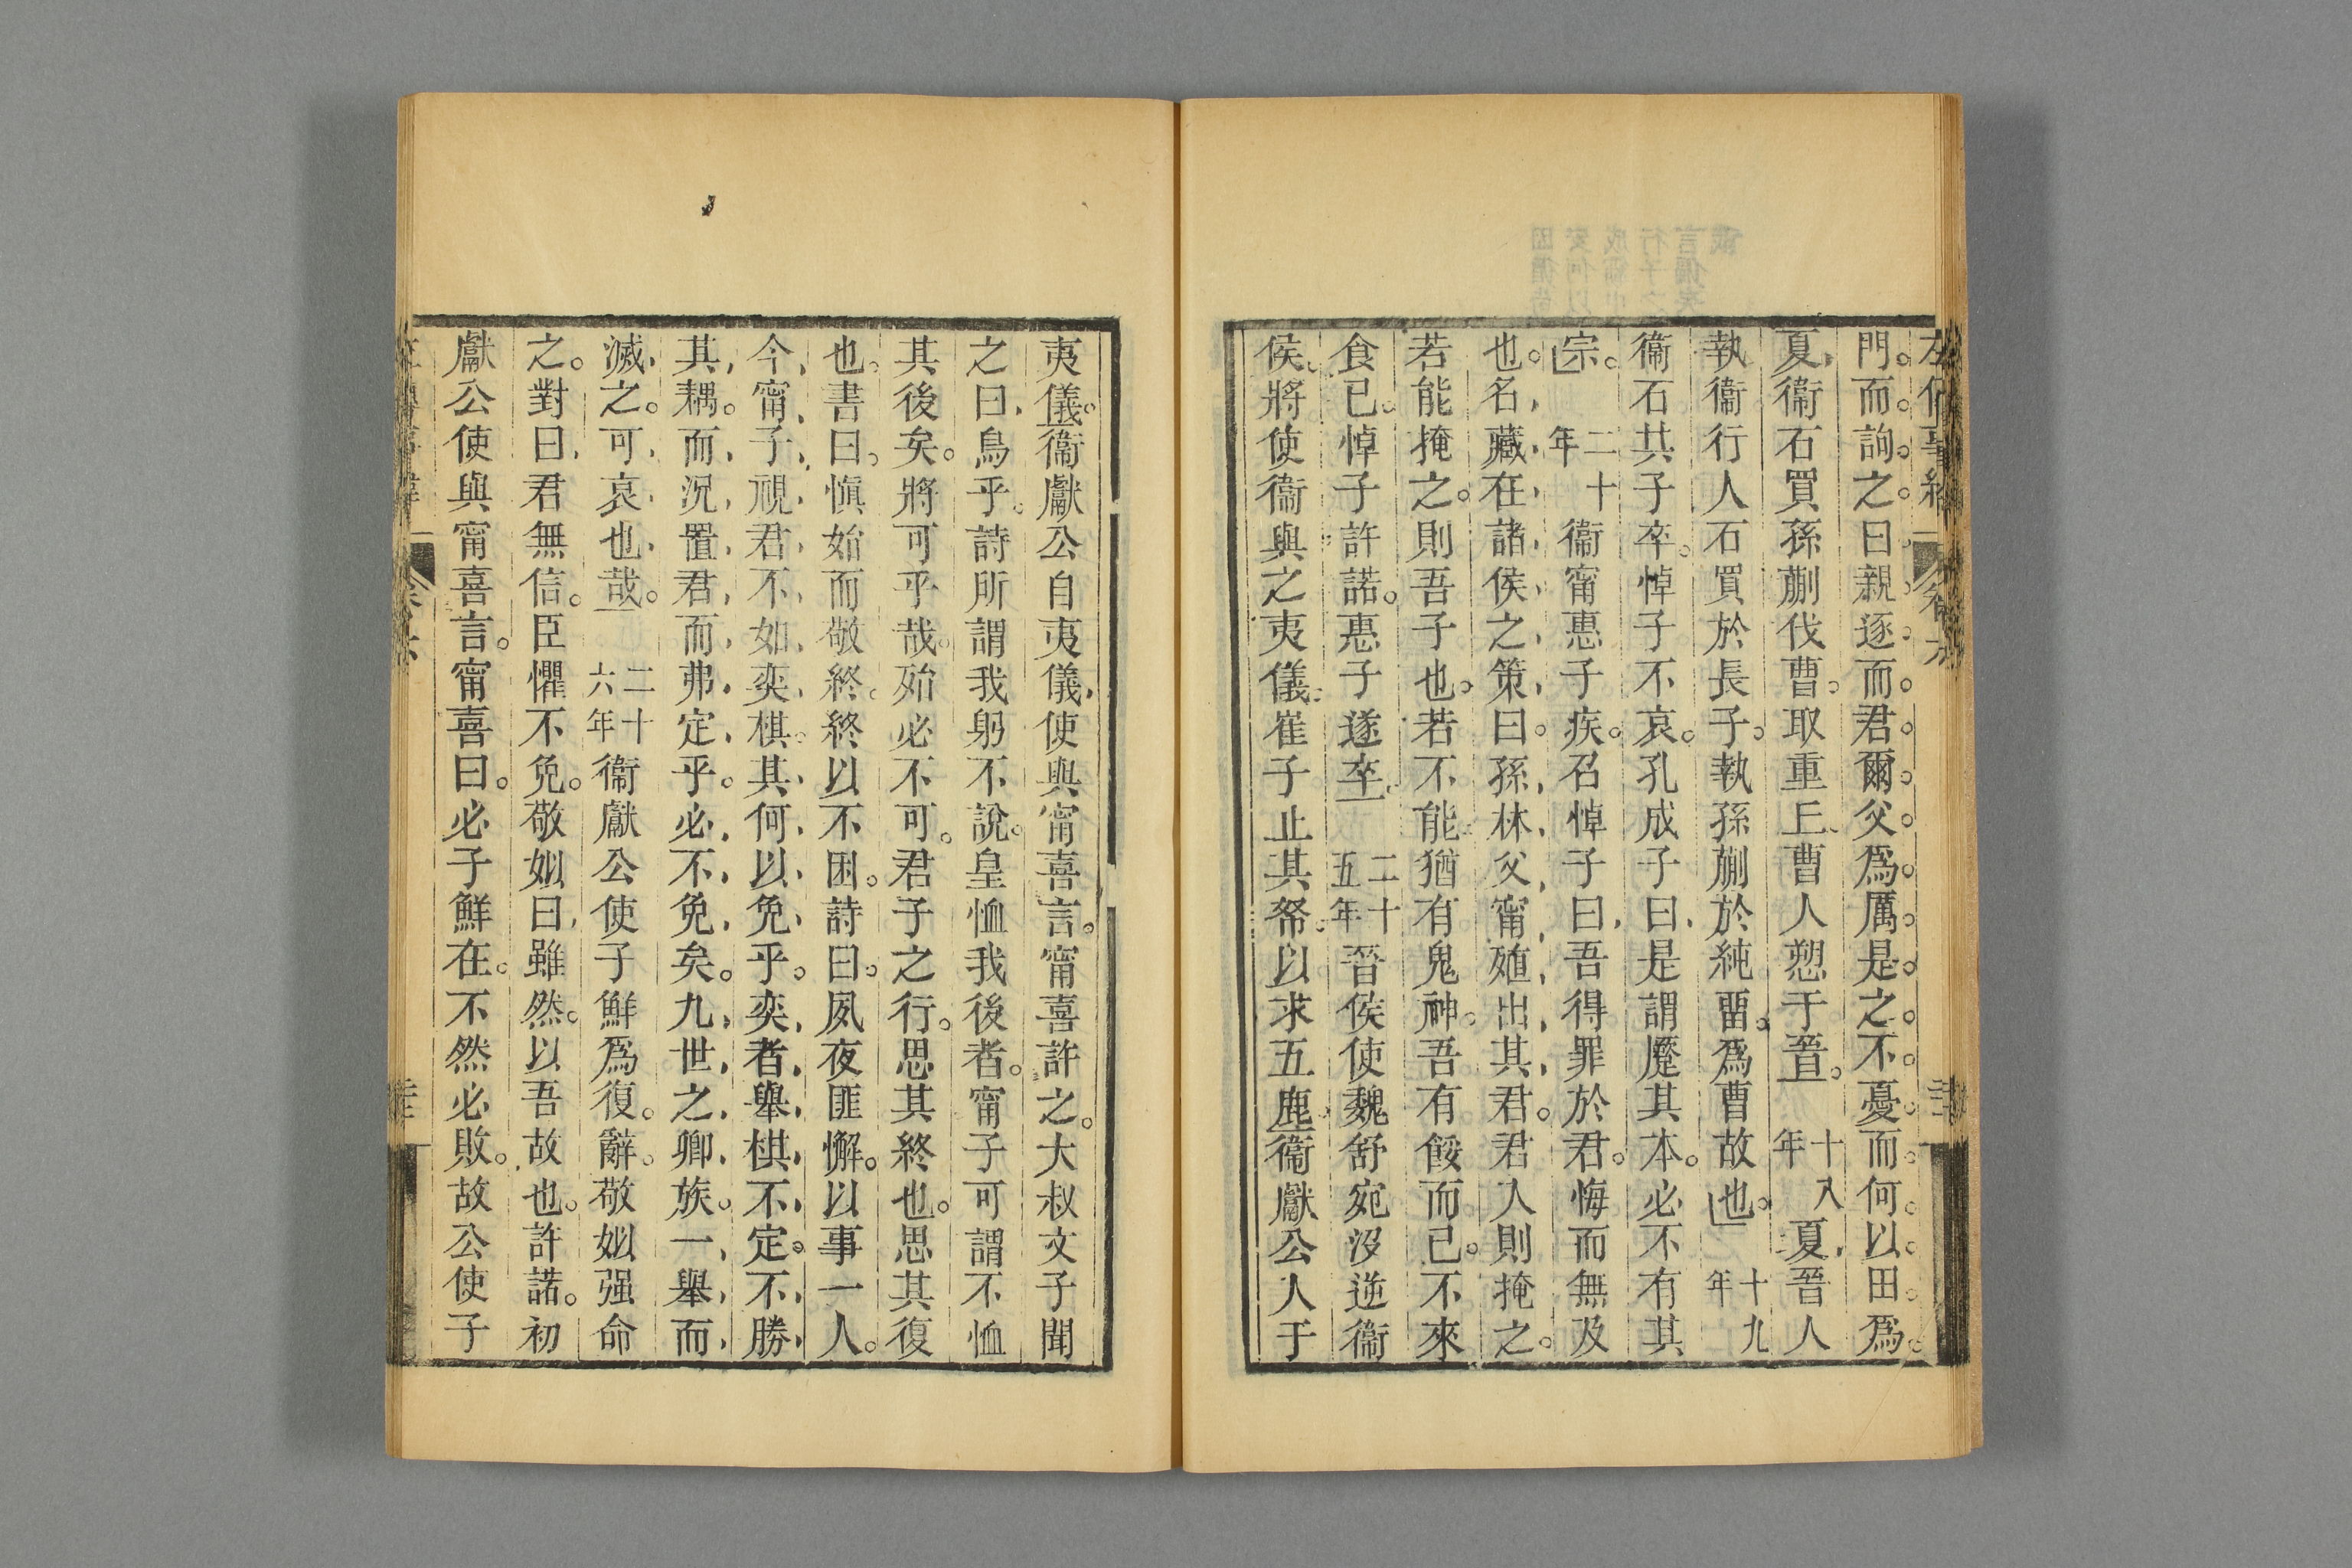 門而詢之曰親逐而君爾父爲厲是之不憂而何以田爲
夏衞石買孫蒯伐曹取重丘曹人愬于晉十八年夏晉人
執衞行人石買於長子執孫蒯於純留爲曹故也十九年
衞石共子卒悼子不哀孔成子曰是謂蹷其本必不有其
宗二十年衞甯惠子疾召悼子曰吾得罪於君悔而無及
也名藏在諸侯之策曰孫林父甯殖出其君君入則掩之
若能掩之則吾子也若不能猶有鬼神吾有餒而已不來
食已悼子許諾惠子遂卒二十五年晉侯使魏舒宛沒逆衞
侯將使衞與之夷儀崔子止其帑以求五鹿衞獻公入于
夷儀衞獻公自夷儀使與甯喜言甯喜許之大叔文子聞
之曰烏乎詩所謂我躬不說皇恤我後者甯子可謂不恤
其後矣將可乎哉殆必不可君子之行思其終也思其復
也書曰愼始而敬終終以不困詩曰夙夜匪懈以事一人
今甯子視君不如奕棋其何以免乎奕者舉棋不定不勝
其耦而況置君而弗定乎必不免矣九世之卿族一舉而
滅之可哀也哉二十六年衞獻公使子鮮爲復辭敬姒强命
之對曰君無信臣懼不免敬姒曰雖然以吾故也許諾初
獻公使與甯喜言甯喜曰必子鮮在不然必敗故公使子